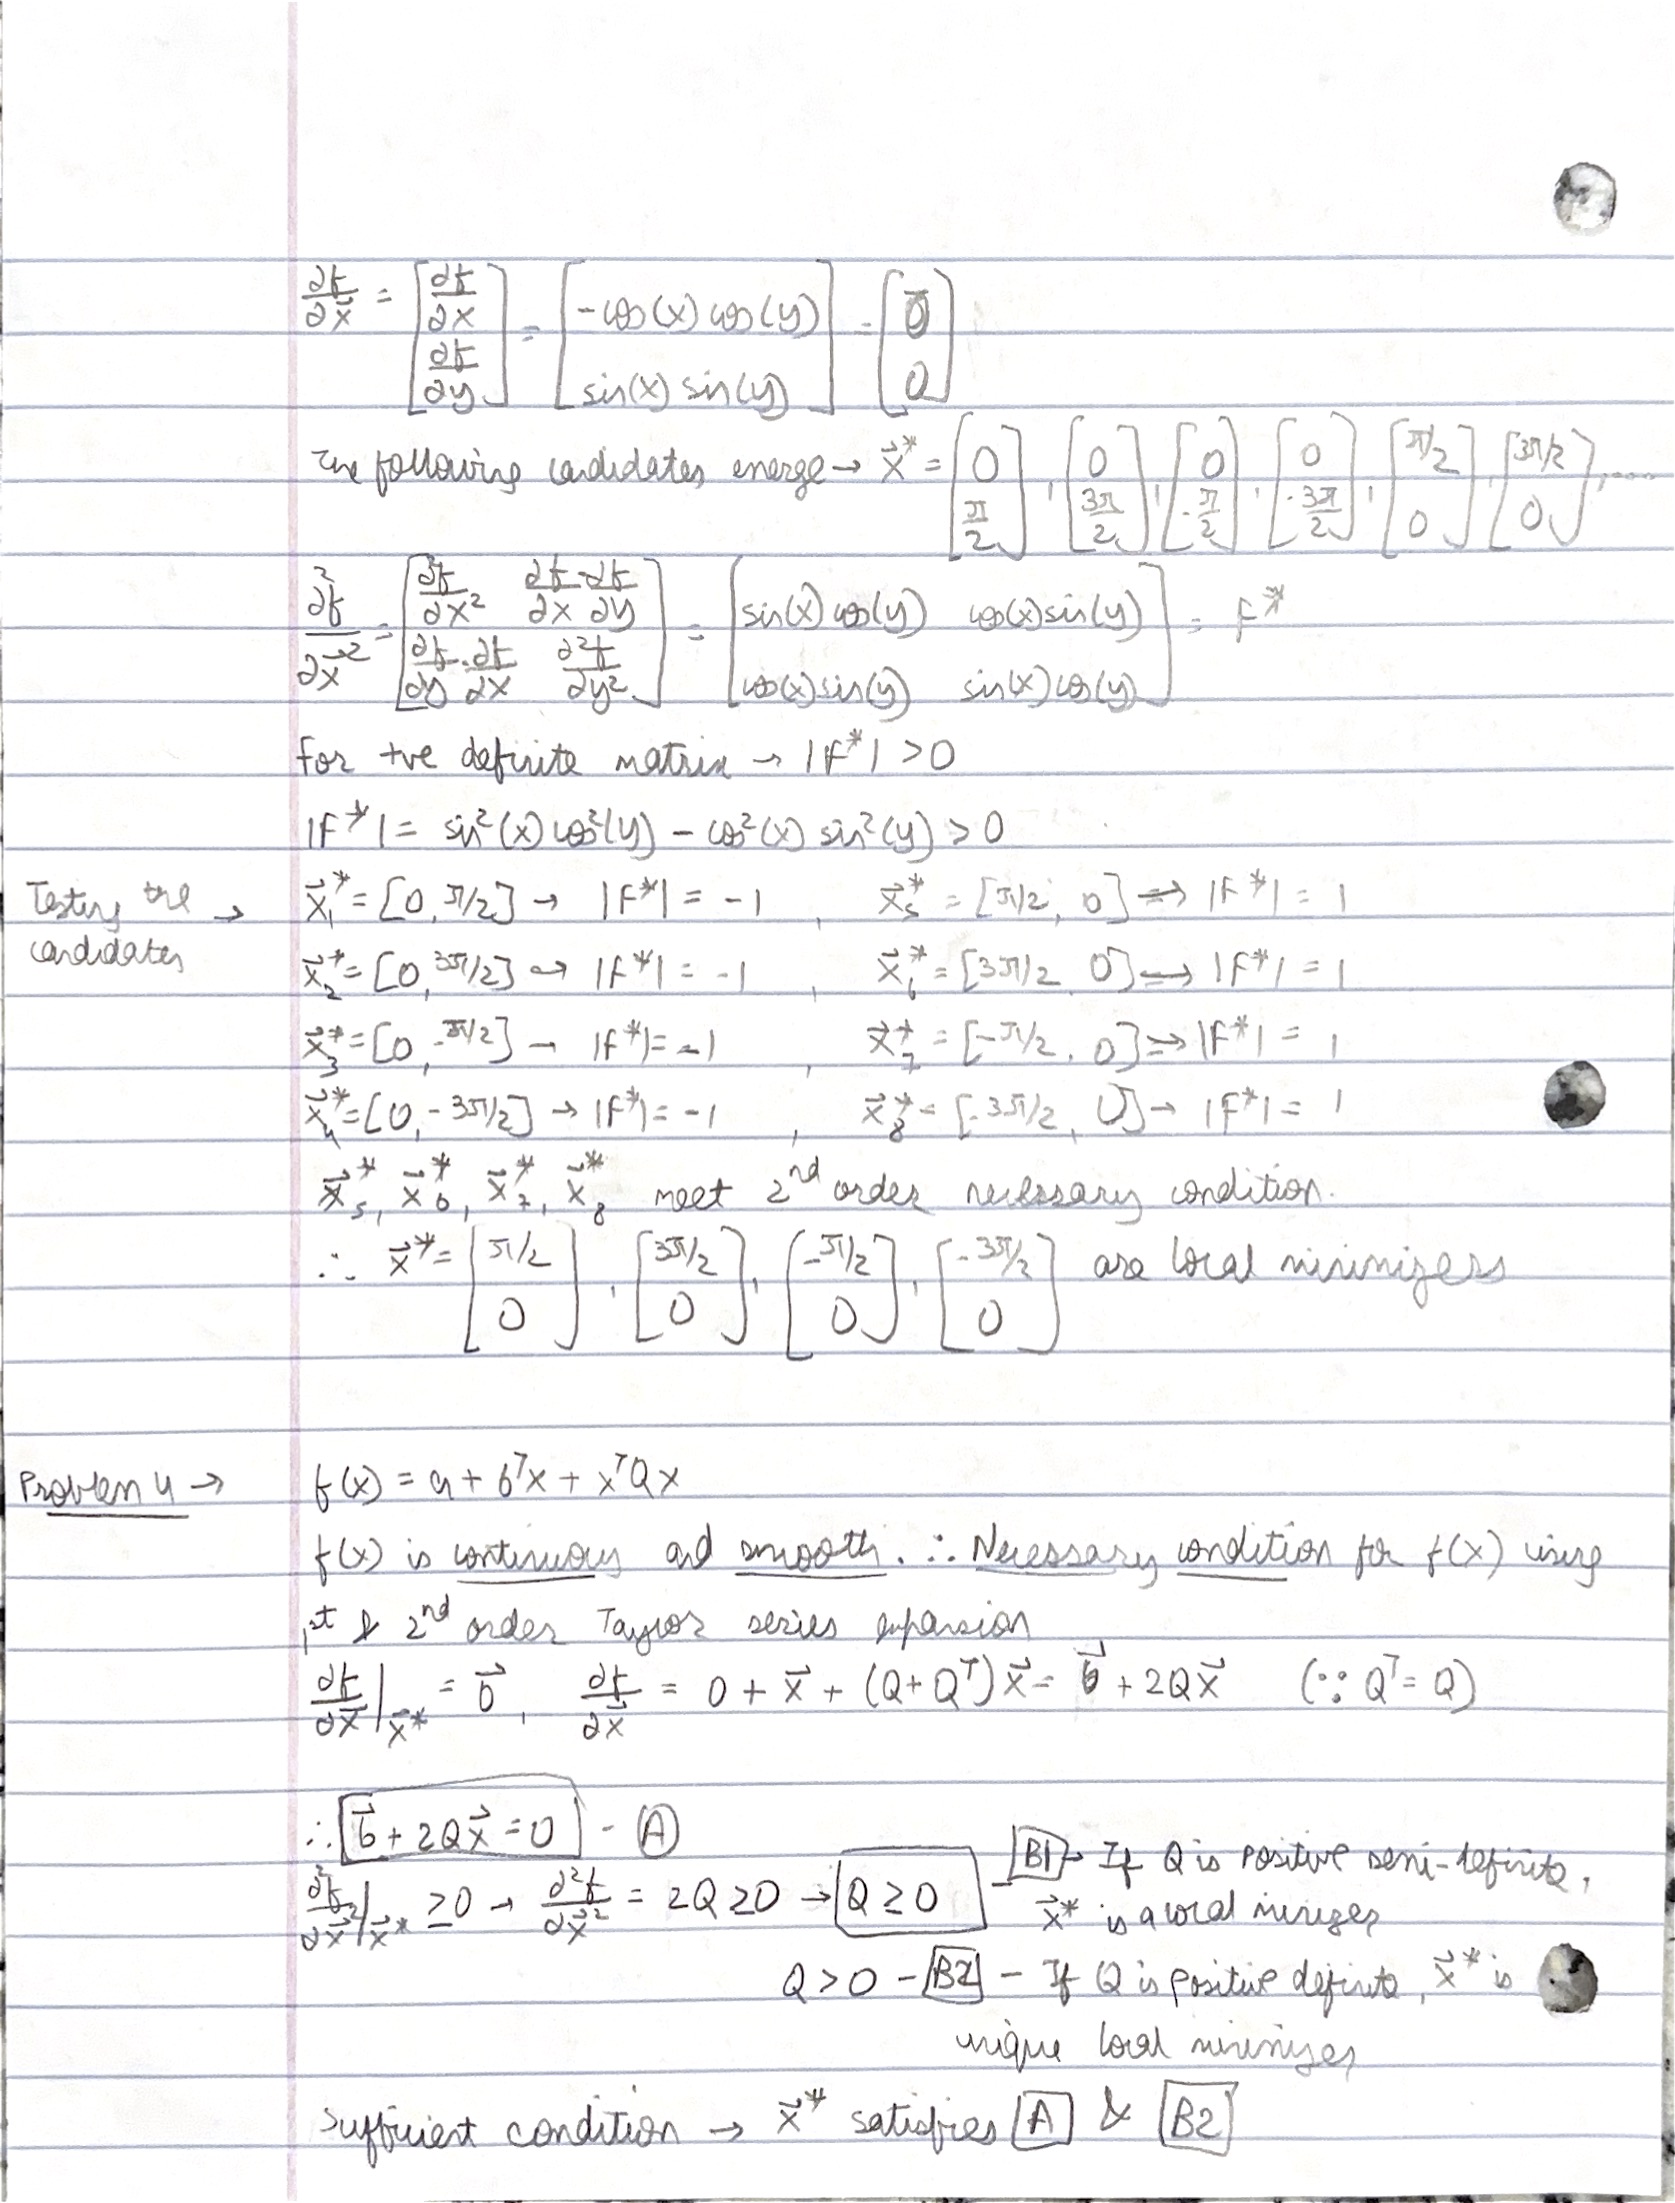 ∂f/∂x⃗ = [∂f/∂x ; ∂f/∂y] = [-cos(x) cos(y) ; sin(x) sin(y)] = [0 ; 0]
The following candidates emerge → x⃗* = [0 ; π/2], [0 ; 3π/2], [0 ; -π/2], [0 ; -3π/2], [π/2 ; 0], [3π/2 ; 0], ....
∂²f/∂x⃗² = [∂²f/∂x² ∂f/∂x·∂f/∂y ; ∂f/∂y·∂f/∂x ∂²f/∂y²] = [sin(x) cos(y) cos(x) sin(y) ; cos(x) sin(y) sin(x) cos(y)] = F*
For +ve definite matrix → |F*| > 0
|F*| = sin²(x) cos²(y) - cos²(x) sin²(y) > 0
Testing the candidates →
x⃗₁* = [0, π/2] → |F*| = -1 , x⃗₅* = [π/2, 0] → |F*| = 1
x⃗₂* = [0, 3π/2] → |F*| = -1 , x⃗₆* = [3π/2, 0] → |F*| = 1
x⃗₃* = [0, -π/2] → |F*| = -1 , x⃗₇* = [-π/2, 0] → |F*| = 1
x⃗₄* = [0, -3π/2] → |F*| = -1 , x⃗₈* = [-3π/2, 0] → |F*| = 1
x⃗₅*, x⃗₆*, x⃗₇*, x⃗₈* meet 2nd order necessary condition.
∴ x⃗* = [π/2 ; 0], [3π/2 ; 0], [-π/2 ; 0], [-3π/2 ; 0] are local minimizers
Problem 4 → f(x) = a + bᵀx + xᵀQx
f(x) is continuous and smooth. ∴ Necessary condition for f(x) using
1st & 2nd order Taylor series expansion
∂f/∂x⃗|x⃗* = 0⃗, ∂f/∂x⃗ = 0 + x⃗ + (Q+Qᵀ)x⃗ = b⃗ + 2Qx⃗ (∵ Qᵀ = Q)
∴ b⃗ + 2Qx⃗ = 0 - A
∂²f/∂x⃗²|x⃗* ≥ 0 → ∂²f/∂x⃗² = 2Q ≥ 0 → Q ≥ 0 - B1 → If Q is positive semi-definite,
x⃗* is a local minimizer
Q > 0 - B2 - If Q is positive definite, x⃗* is
unique local minimizer
Sufficient condition → x⃗* satisfies A & B2